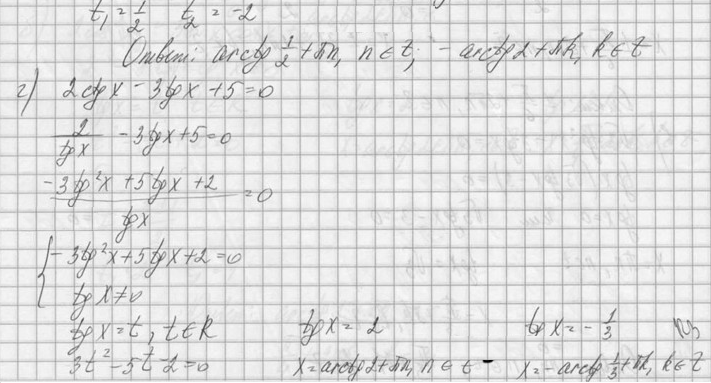 t₁ = 1/2 t₂ = -2
Ответ: arctg 1/2 + πn, n ∈ Z; - arctg 2 + πk, k ∈ Z
г) 2ctgx - 3tgx + 5 = 0
2/tgx - 3tgx + 5 = 0
(-3tg²x + 5tgx + 2)/tgx = 0
{ - 3tg²x + 5tgx + 2 = 0
tgx ≠ 0
tgx = t, t ∈ R tgx = 2 tgx = - 1/3
3t² - 5t - 2 = 0 x = arctg 2 + πn, n ∈ Z - x = - arctg 1/3 + πk, k ∈ Z